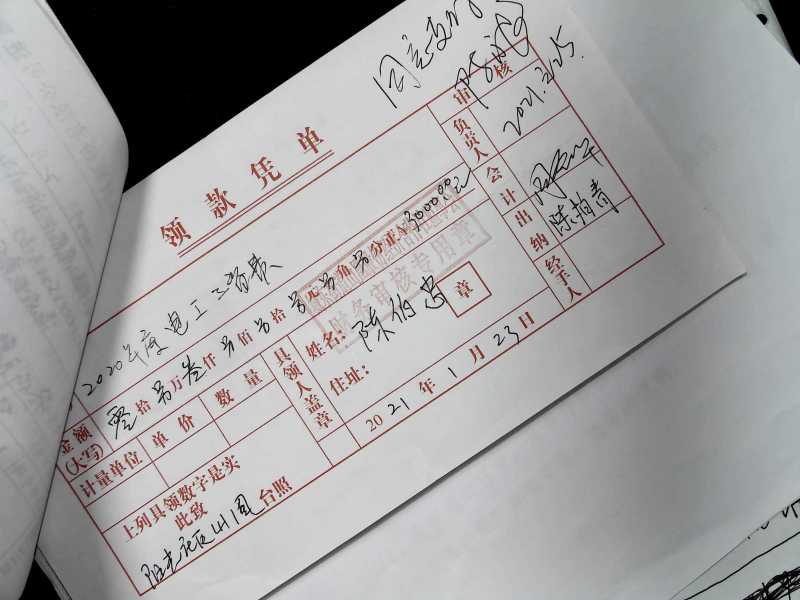 同意支付
2021.2.25.
领款凭单
2020年度电工工资费
审核
负责人
会计
出纳
陈柏青
经手人
金额(大写) 零拾另万叁仟另佰另拾另元另角另分正¥3000.00元
财务审核专用章
计量单位 单价 数量
具领人盖章
姓名: 陈伯忠 章
住址:
上列具领数字是实
此致
台照
2021年1月23日